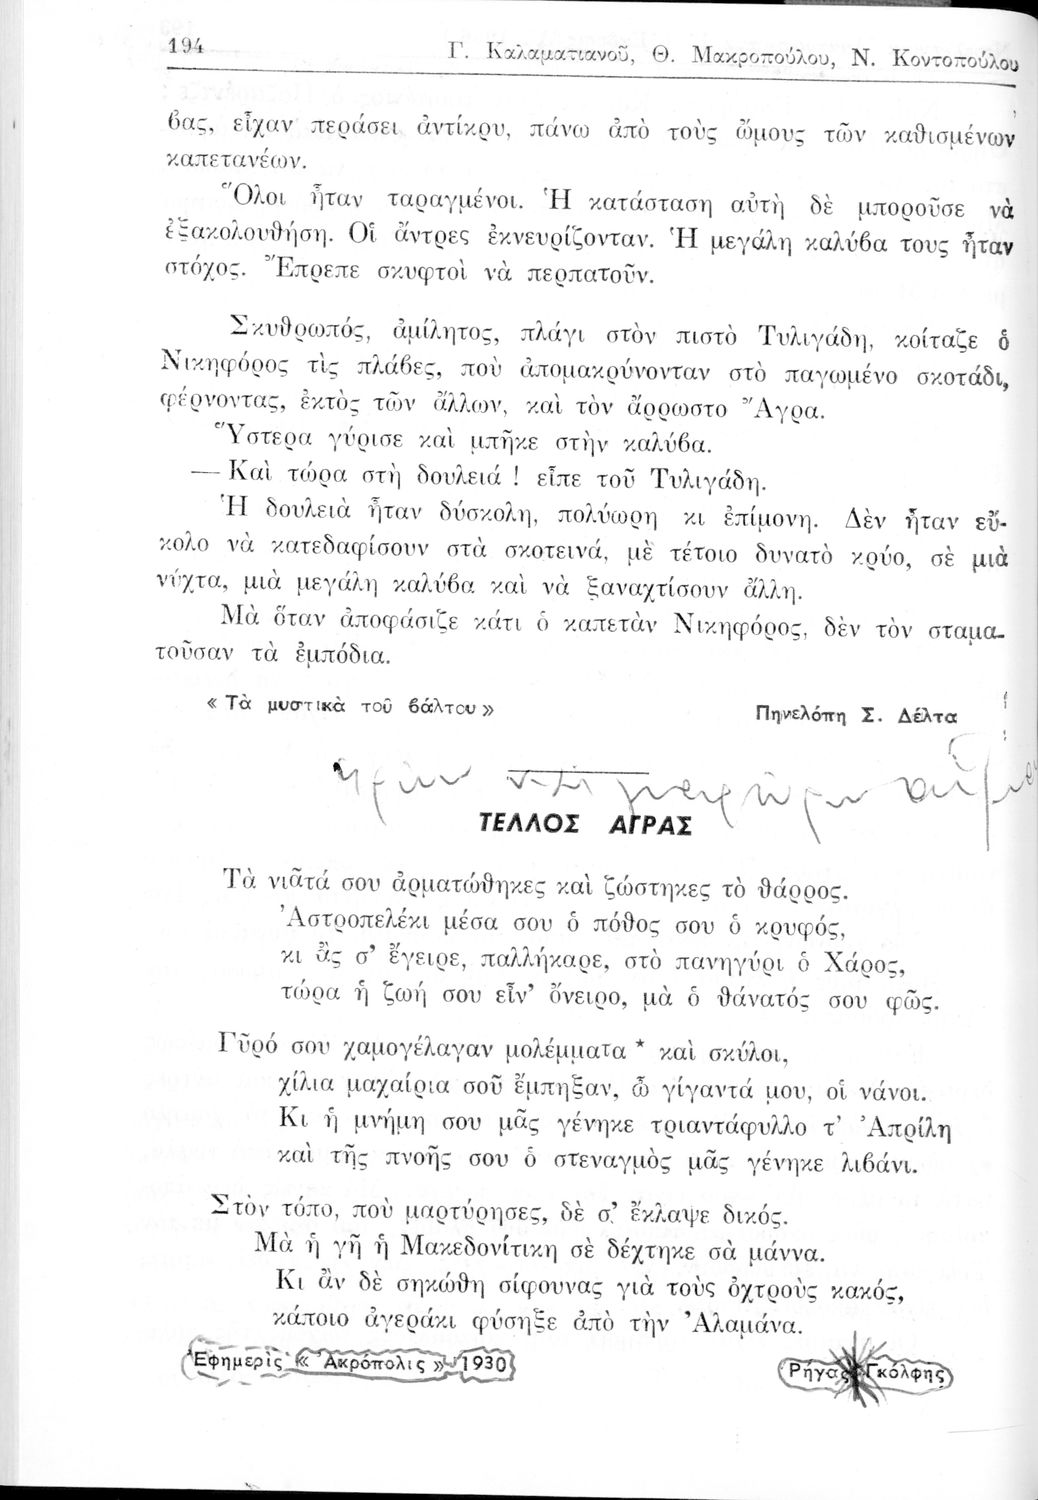 194
Γ. Καλαματιανοῦ, Θ. Μακροπούλου, Ν. Κοντοπούλου
βας, εἶχαν περάσει ἀντίκρυ, πάνω ἀπὸ τοὺς ὤμους τῶν καθισμένων
καπετανέων.
Ὅλοι ἦταν ταραγμένοι. Ἡ κατάσταση αὐτὴ δὲ μποροῦσε νὰ
ἐξακολουθήση. Οἱ ἄντρες ἐκνευρίζονταν. Ἡ μεγάλη καλύβα τους ἦταν
στόχος. Ἔπρεπε σκυφτοὶ νὰ περπατοῦν.
Σκυθρωπός, ἀμίλητος, πλάγι στὸν πιστὸ Τυλιγάδη, κοίταζε ὁ
Νικηφόρος τὶς πλάβες, ποὺ ἀπομακρύνονταν στὸ παγωμένο σκοτάδι,
φέρνοντας, ἐκτὸς τῶν ἄλλων, καὶ τὸν ἄρρωστο Ἄγρα.
Ὕστερα γύρισε καὶ μπῆκε στὴν καλύβα.
— Καὶ τώρα στὴ δουλειά ! εἶπε τοῦ Τυλιγάδη.
Ἡ δουλειὰ ἦταν δύσκολη, πολύωρη κι ἐπίμονη. Δὲν ἦταν εὔ-
κολο νὰ κατεδαφίσουν στὰ σκοτεινά, μὲ τέτοιο δυνατὸ κρύο, σὲ μιὰ
νύχτα, μιὰ μεγάλη καλύβα καὶ νὰ ξαναχτίσουν ἄλλη.
Μὰ ὅταν ἀποφάσιζε κάτι ὁ καπετὰν Νικηφόρος, δὲν τὸν σταμα-
τοῦσαν τὰ ἐμπόδια.
« Τὰ μυστικὰ τοῦ βάλτου »
Πηνελόπη Σ. Δέλτα
ΤΕΛΛΟΣ ΑΓΡΑΣ
Τὰ νιᾶτά σου ἀρματώθηκες καὶ ζώστηκες τὸ θάρρος.
Ἀστροπελέκι μέσα σου ὁ πόθος σου ὁ κρυφός,
κι ἂς σ' ἔγειρε, παλλήκαρε, στὸ πανηγύρι ὁ Χάρος,
τώρα ἡ ζωή σου εἶν' ὄνειρο, μὰ ὁ θάνατός σου φῶς.
Γῦρό σου χαμογέλαγαν μολέμματα * καὶ σκύλοι,
χίλια μαχαίρια σοῦ ἔμπηξαν, ὦ γίγαντά μου, οἱ νάνοι.
Κι ἡ μνήμη σου μᾶς γένηκε τριαντάφυλλο τ' Ἀπρίλη
καὶ τῆς πνοῆς σου ὁ στεναγμὸς μᾶς γένηκε λιβάνι.
Στὸν τόπο, ποὺ μαρτύρησες, δὲ σ' ἔκλαψε δικός.
Μὰ ἡ γῆ ἡ Μακεδονίτικη σὲ δέχτηκε σὰ μάννα.
Κι ἂν δὲ σηκώθη σίφουνας γιὰ τοὺς ὀχτροὺς κακός,
κάποιο ἀγεράκι φύσηξε ἀπὸ τὴν Ἀλαμάνα.
Ἐφημερὶς « Ἀκρόπολις » 1930
Ρήγας Γκόλφης